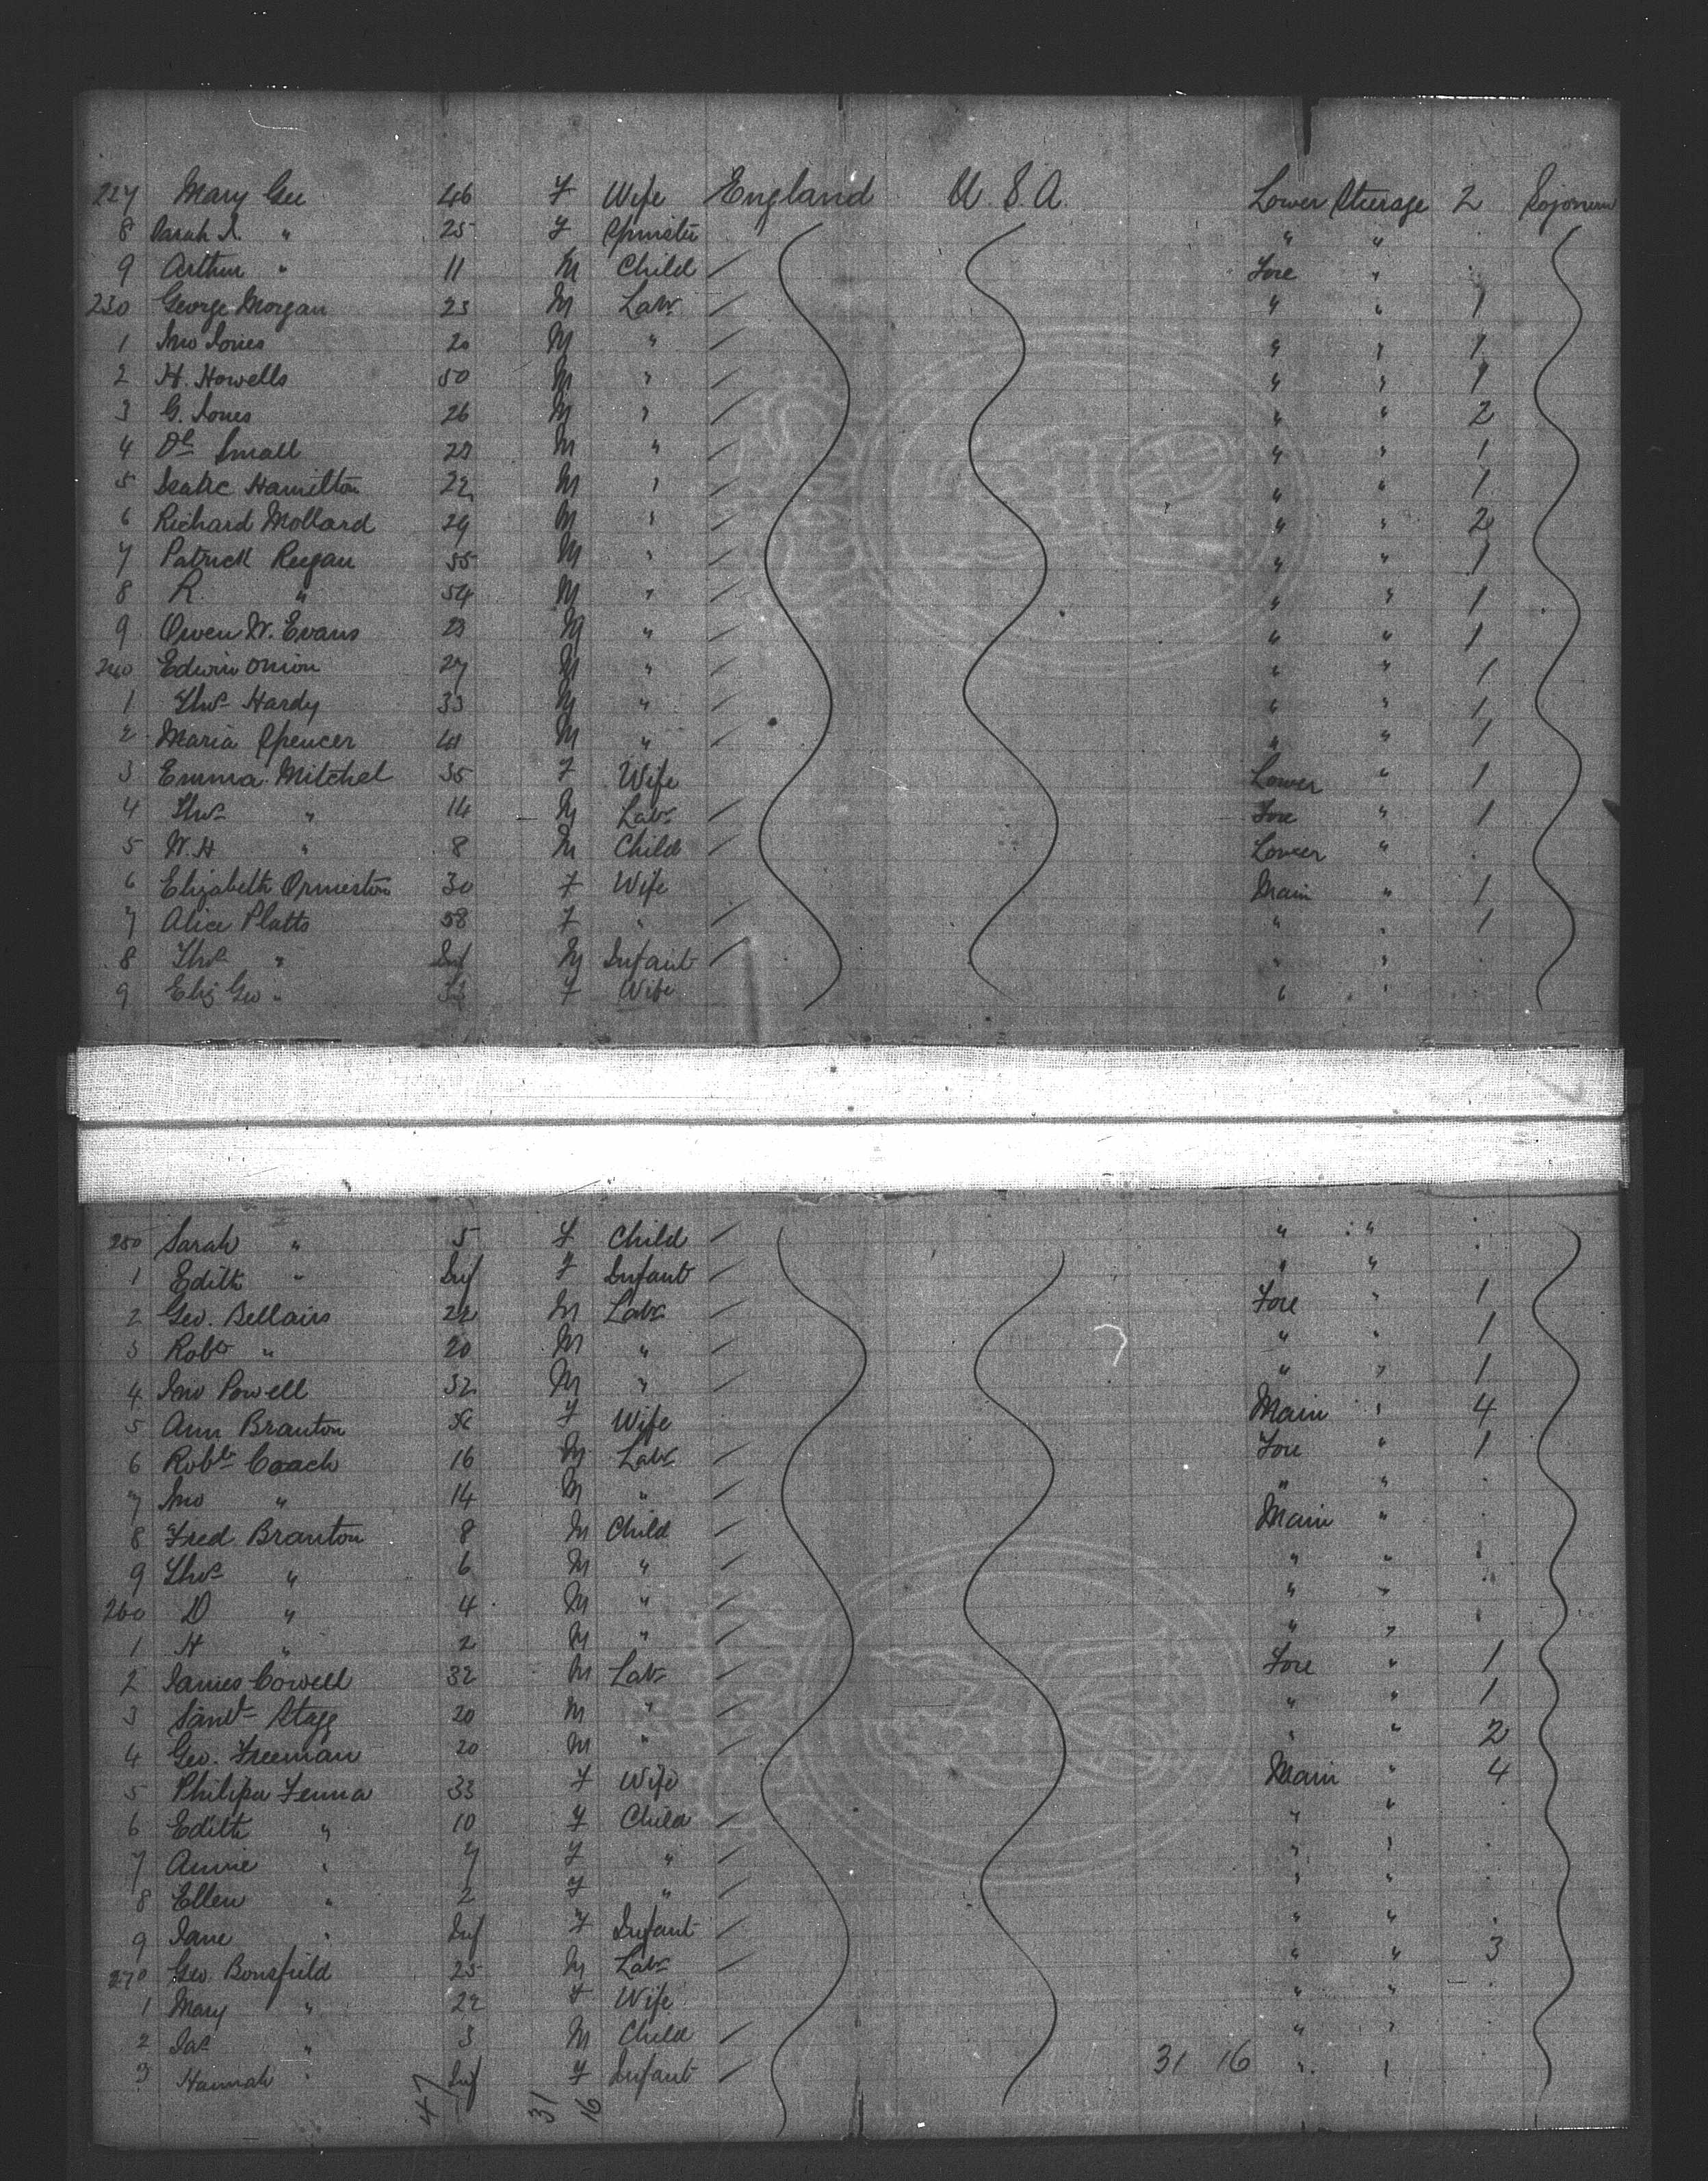 227 Mary Gee 46 F Wife England U.S.A. Lower Steerage 2 Sojourn
8 Sarah J. " 25 F Spinster " "
9 Arthur " 11 M Child / Fore "
230 George Morgan 23 M Labr / " " 1
1 Jno Jones 20 M " / " " 1
2 H. Howells 50 M " / " " 1
3 G. Jones 26 M " / " " 2
4 Dl Small 28 M " / " " 1
5 Hamilton 22 M " / " " 1
6 Richard Mollard 29 M " / " " 2
7 Patrick Regan 55 M " / " " 1
8 R. " 54 M " / " " 1
9 Owen W. Evans 23 M " / " " 1
240 Edwin Onion 27 M " / " " 1
1 Thos Hardy 33 M " / " " 1
2 Maria Spencer 41 M " / " " 1
3 Emma Mitchel 35 F Wife Lower " 1
4 Thos " 14 M Labr / Fore " 1
5 W.H " 8 M Child / Lower "
6 Elizabeth Ormiston 30 F Wife Main " 1
7 Alice Platts 58 F " / " " 1
8 Thos " Inf M Infant / " "
9 Eliz Geo " F Wife " "
250 Sarah " 5 F Child / " "
1 Edith " Inf F Infant / " "
2 Geo. Bellairs 22 M Labr / Fore " 1
3 Robt " 20 M " / " " 1
4 Jno Powell 32 M " / " " 1
5 Ann Branton 36 F Wife Main " 4
6 Robt Coach 16 M Labr / Fore " 1
7 Jno " 14 M " / " "
8 Fred Branton 8 M Child / Main "
9 Thos " 6 M " / " "
260 D " 4 M " / " "
1 H " 2 M " / " "
2 James Cowell 32 M Labr / Fore " 1
3 Saml Stagg 20 M " / " " 1
4 Geo. Freeman 20 M " / " " 2
5 Philipa Fenna 33 F Wife Main " 4
6 Edith " 10 F Child / " "
7 Annie " 7 F " / " "
8 Ellen " 2 F " / " "
9 Jane " Inf F Infant / " "
270 Geo. Bonsfield 25 M Labr / " " 3
1 Mary " 22 F Wife " "
2 Jas " 3 M Child / " "
3 Hannah " Inf F Infant / 31 16 " "
47 31 16